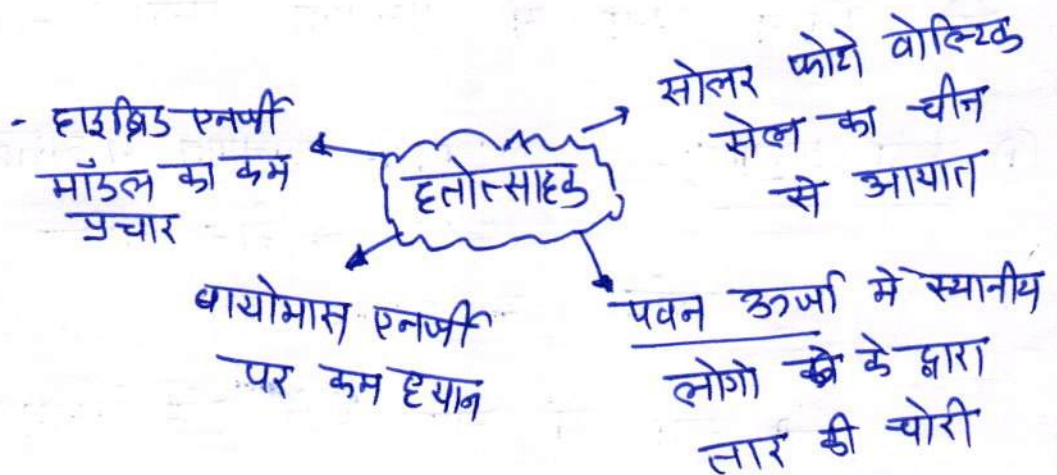 - हाइब्रिड एनर्जी
मॉडल का कम
प्रचार
हतोत्साहक
सोलर फोटो वोल्टिक
सेल का चीन
से आयात
बायोमास एनर्जी
पर कम ध्यान
पवन ऊर्जा में स्थानीय
लोगो के द्वारा
तार की चोरी